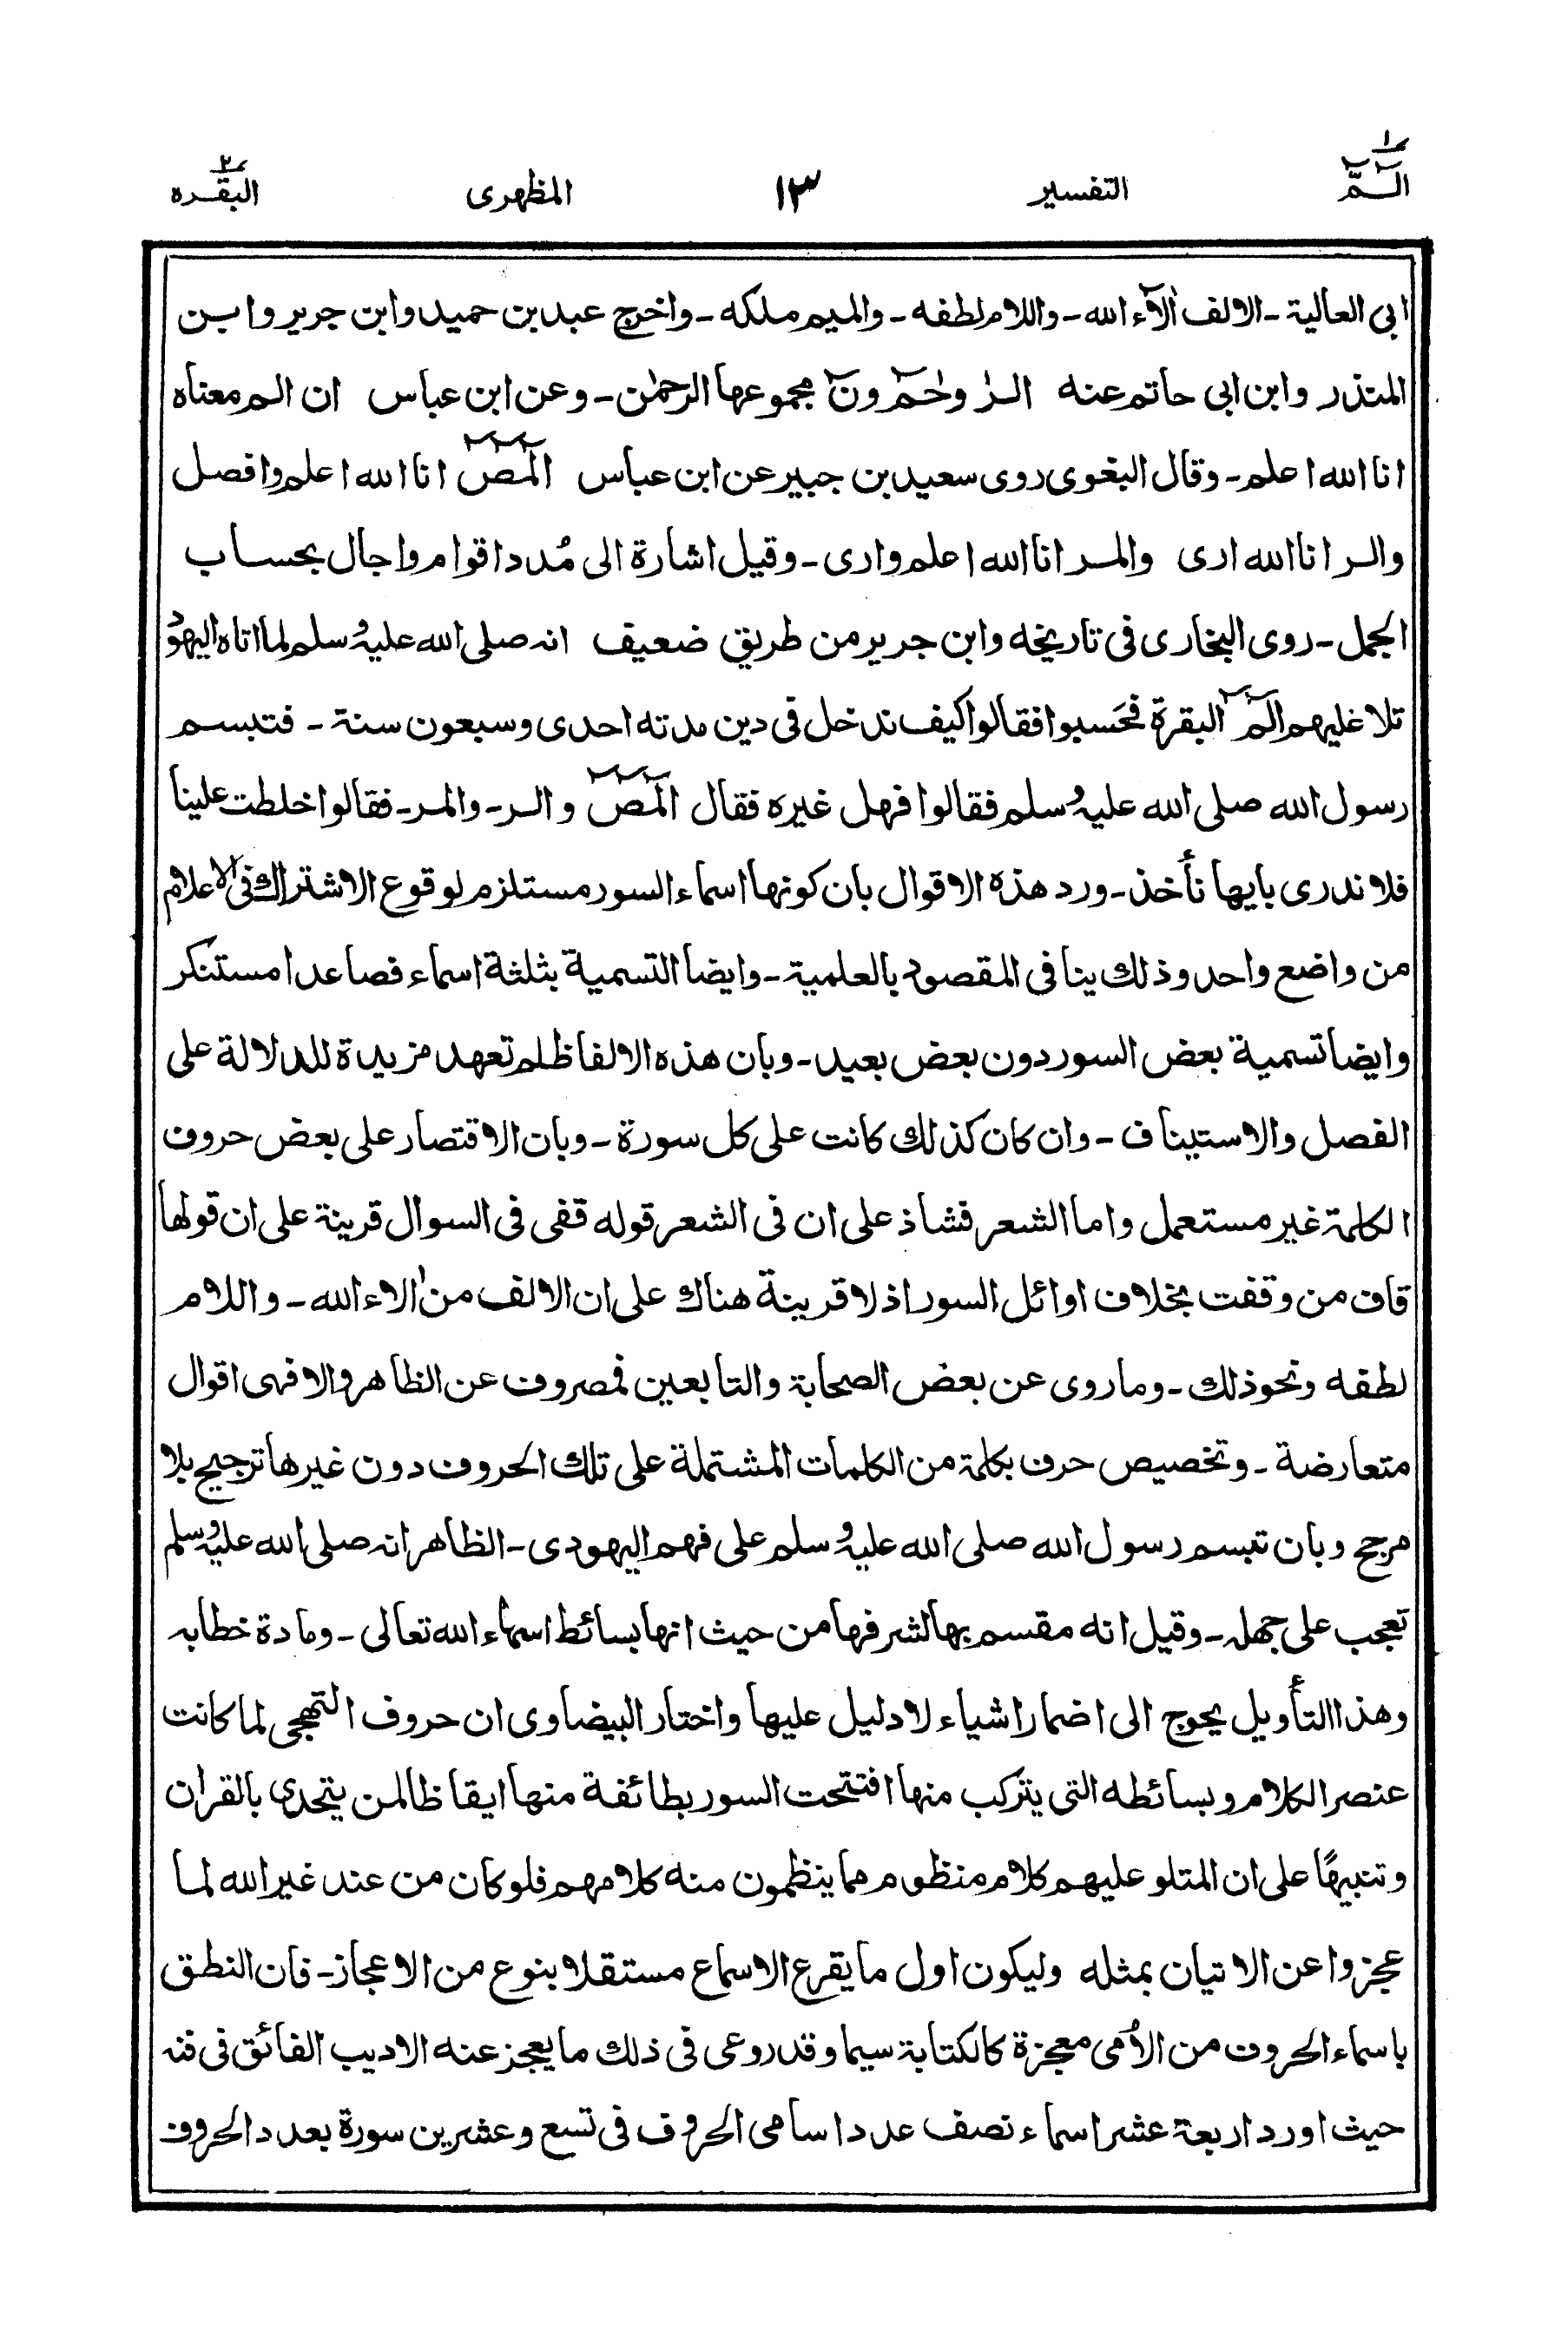 الٓمّٓ ١ التفسير ١٣ المظهرى البقره ٢
ابى العالية ـ الالف اٰلآء الله ـ واللام لطفه ـ والميم ملكه ـ واخرج عبد بن حميد وابن جرير وابن
المنذر وابن ابى حاتم عنه الرٰ وحٰمٓ ونٓ مجموعها الرحمٰن ـ وعن ابن عباس ان الم معناه
انا الله اعلم ـ وقال البغوى روى سعيد بن جبير عن ابن عباس الٓمٓصٓ انا الله اعلم وافصل
والر انا الله ارى والمر انا الله اعلم وارى ـ وقيل اشارة الى مُدد اقوام واجال بحساب
الجمل ـ روى البخارى فى تاريخه وابن جرير من طريق ضعيف انه صلى الله عليه وسلم لما اتاه اليهود
تلا عليهم الٓمٓ البقرة فحَسبوا فقالوا كيف ندخل فى دين مدته احدى وسبعون سنة ـ فتبسم
رسول الله صلى الله عليه وسلم فقالوا فهل غيره فقال الٓمٓصٓ والر ـ والمر ـ فقالوا خلطت علينا
فلا ندرى بايها نأخذ ـ ورد هذه الاقوال بان كونها اسماء السور مستلزم لوقوع الاشتراك فى الاعلام
من واضع واحد وذلك ينافى المقصود بالعلمية ـ وايضا التسمية بثلثة اسماء فصاعدا مستنكر
وايضا تسمية بعض السور دون بعض بعيد ـ وبان هذه الالفاظ لم تعهد مزيدة للدلالة على
الفصل والاستيناف ـ وان كان كذلك كانت على كل سورة ـ وبان الاقتصار على بعض حروف
الكلمة غير مستعمل واما الشعر فشاذ على ان فى الشعر قوله قفى فى السوال قرينة على ان قولها
قاف من وقفت بخلاف اوائل السور اذ لا قرينة هناك على ان الالف من اٰلاء الله ـ واللام
لطفه ونحو ذلك ـ وما روى عن بعض الصحابة والتابعين فمصروف عن الظاهر والا فهى اقوال
متعارضة ـ وتخصيص حرف بكلمة من الكلمات المشتملة على تلك الحروف دون غيرها ترجيح بلا
مرجح وبان تبسم رسول الله صلى الله عليه وسلم على فهم اليهودى ـ الظاهر انه صلى الله عليه وسلم
تعجب على جهله ـ وقيل انه مقسم بها لشرفها من حيث انها بسائط اسماء الله تعالى ـ ومادة خطابه
وهذا التأويل يحوج الى اضمار اشياء لا دليل عليها واختار البيضاوى ان حروف التهجى لما كانت
عنصر الكلام وبسائطه التى يتركب منها افتتحت السور بطائفة منها ايقاظا لمن يتحدى بالقران
وتنبيهًا على ان المتلو عليهم كلام منظوم مما ينظمون منه كلامهم فلو كان من عند غير الله لما
عجزوا عن الاتيان بمثله وليكون اول ما يقرع الاسماع مستقلا بنوع من الاعجاز ـ فان النطق
باسماء الحروف من الأمى معجزة كالكتابة سيما وقد روعى فى ذلك ما يعجز عنه الاديب الفائق فى فنه
حيث اورد اربعة عشر اسماء نصف عدد اسامى الحروف فى تسع وعشرين سورة بعدد الحروف